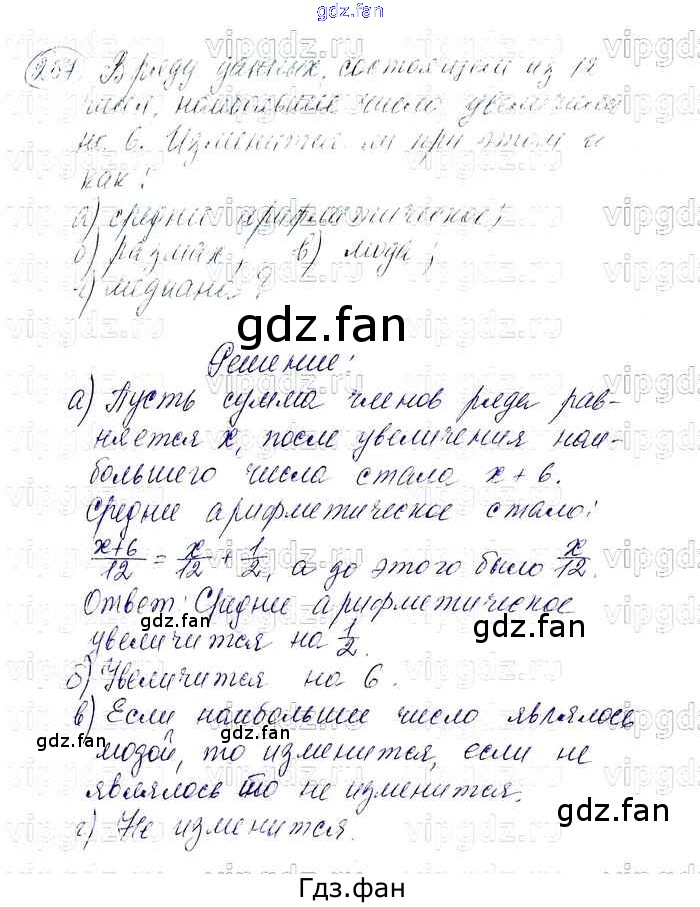 gdz.fan
257 В ряду данных, состоящем из 12
чисел, наибольшее число увеличили
на 6. Изменится ли при этом и
как:
а) среднее арифметическое;
б) размах; в) мода;
г) медиана?
gdz.fan
Решение:
а) Пусть сумма членов ряда рав-
няется x, после увеличения наи-
большего числа стала x+6.
Среднее арифметическое стало:
x+6/12 = x/12 + 1/2, а до этого было x/12.
Ответ: Среднее арифметическое
увеличится на 1/2.
gdz.fan
gdz.fan
б) Увеличится на 6.
в) Если наибольшее число являлось
gdz.fan
модой, то изменится, если не
являлось то не изменится.
г) Не изменится.
gdz.fan
Гдз.фан